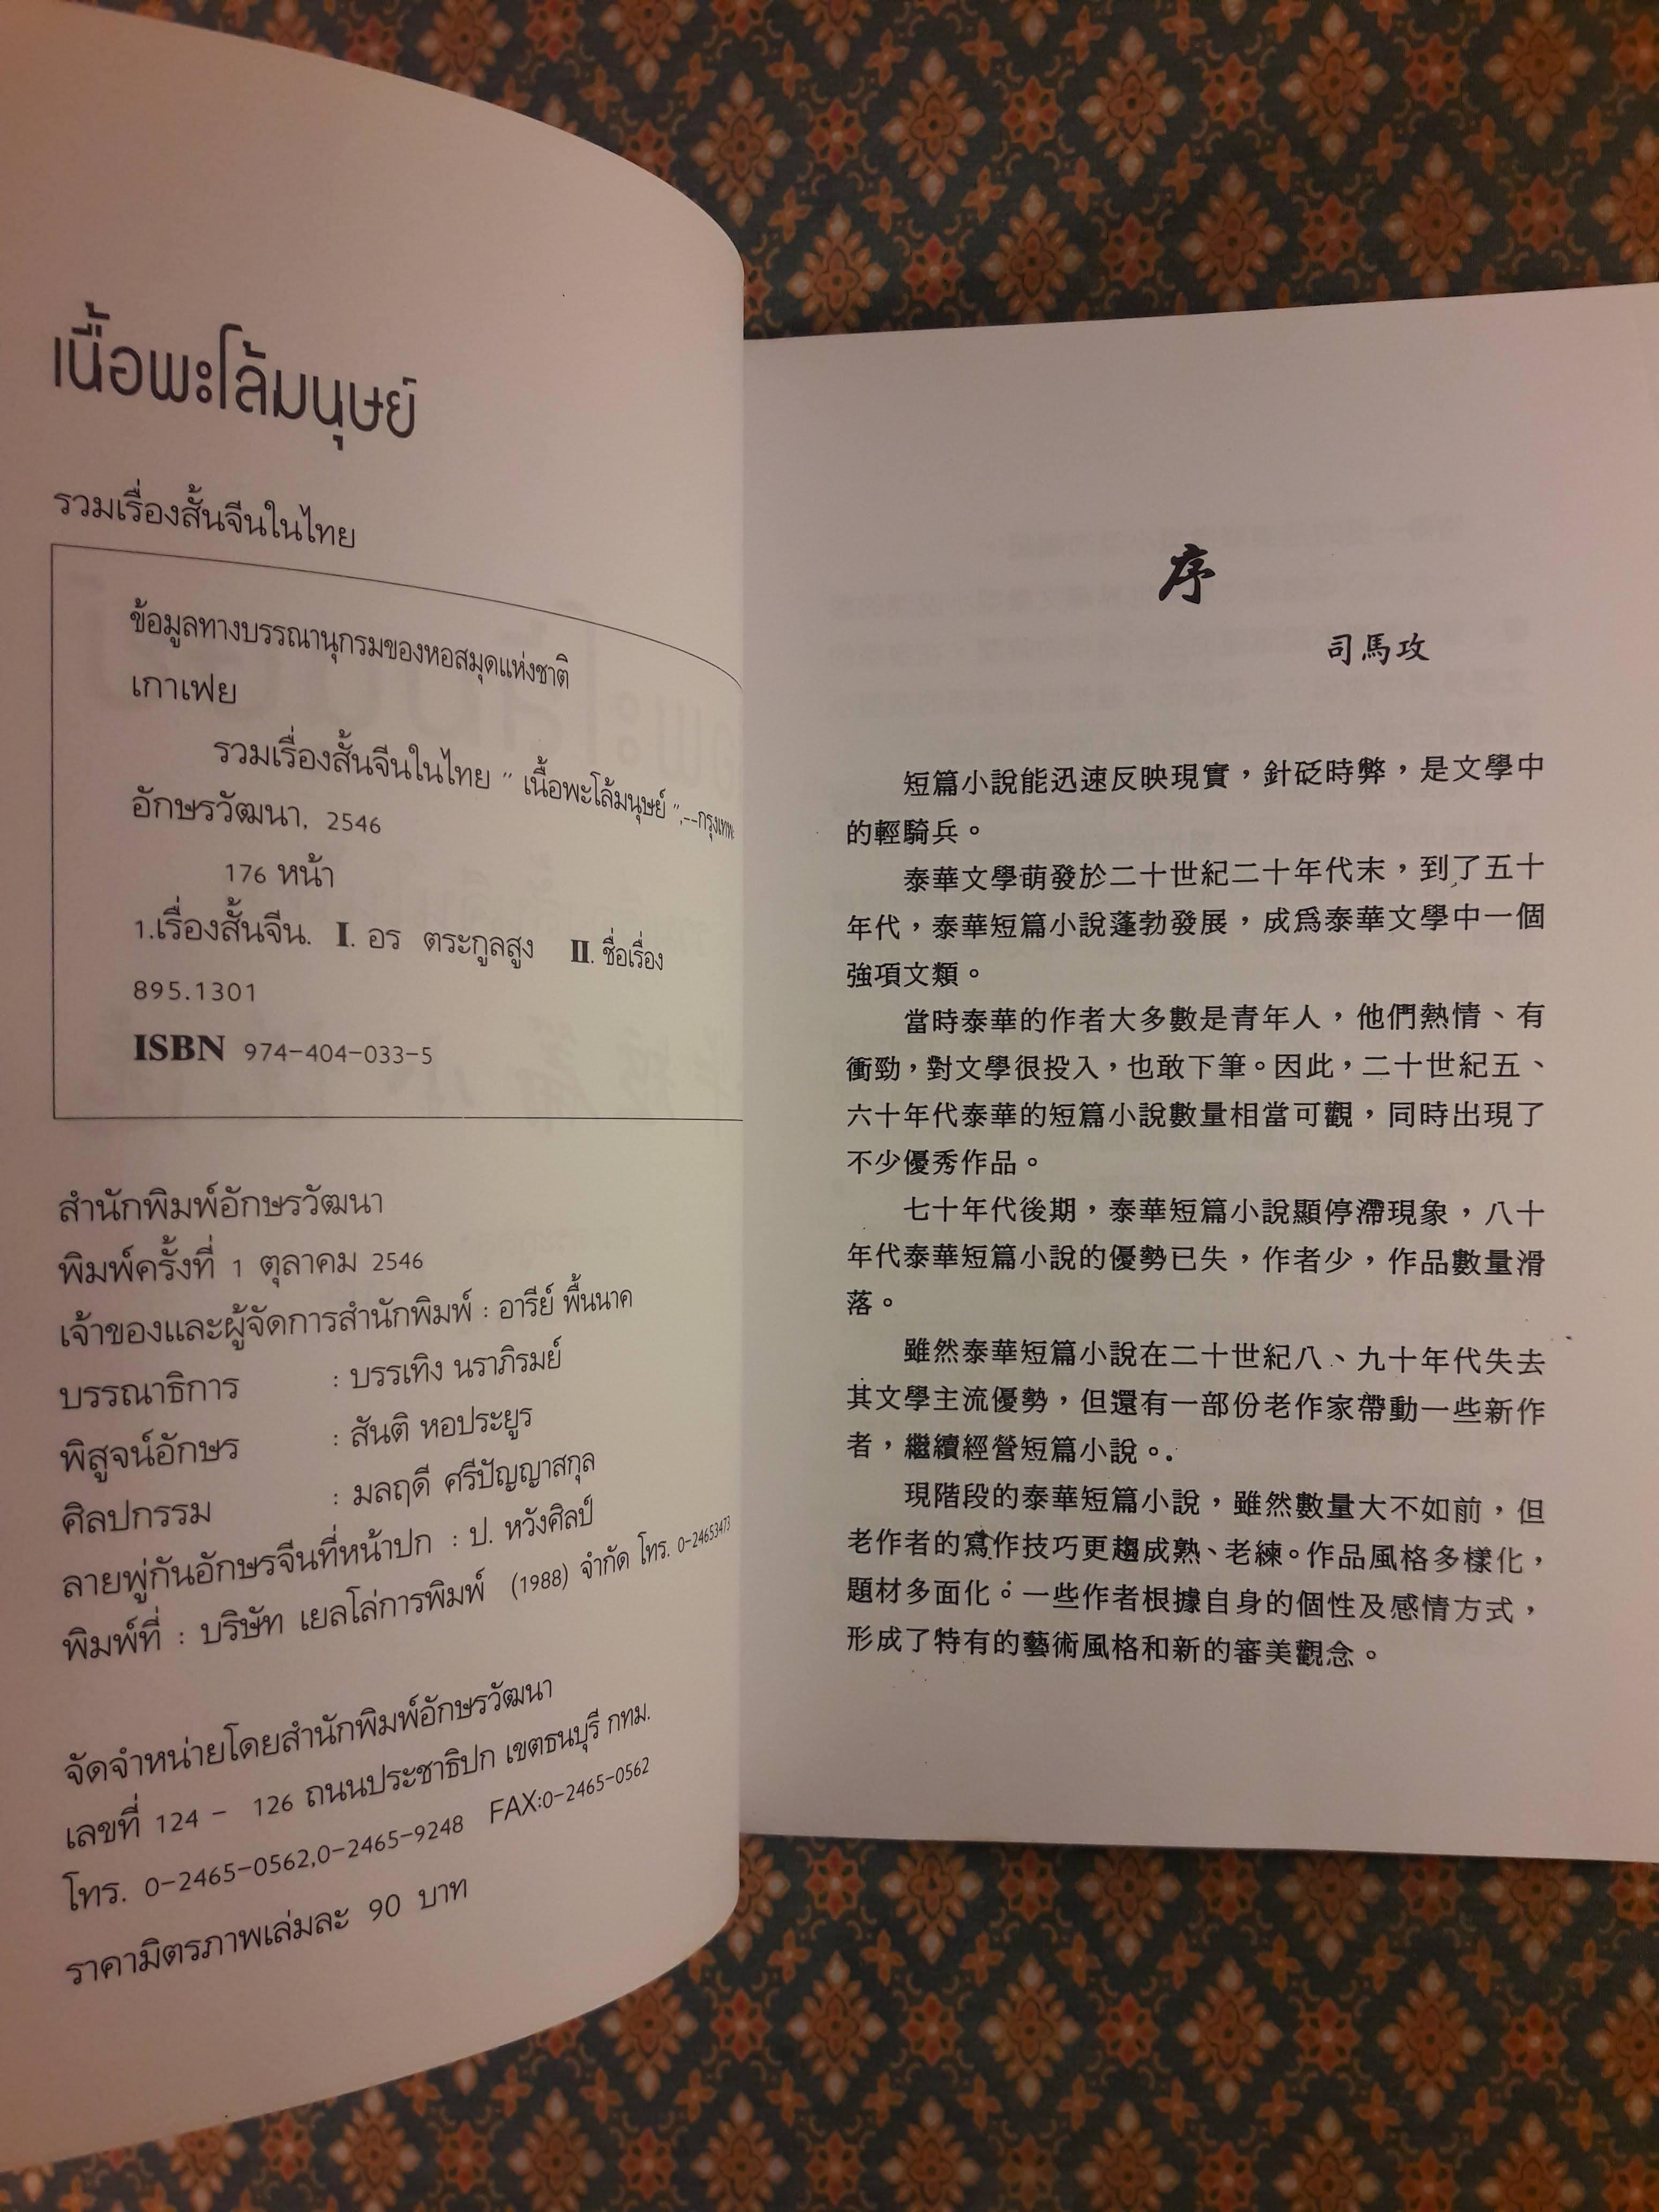 เนื้อพะโล้มนุษย์
รวมเรื่องสั้นจีนในไทย
ข้อมูลทางบรรณานุกรมของหอสมุดแห่งชาติ
เกาเฟย
รวมเรื่องสั้นจีนในไทย " เนื้อพะโล้มนุษย์ ".--กรุงเทพ
อักษรวัฒนา, 2546
176 หน้า
1.เรื่องสั้นจีน. I. อร ตระกูลสูง II. ชื่อเรื่อง
895.1301
ISBN 974-404-033-5
สำนักพิมพ์อักษรวัฒนา
พิมพ์ครั้งที่ 1 ตุลาคม 2546
เจ้าของและผู้จัดการสำนักพิมพ์ : อารีย์ พื้นนาค
บรรณาธิการ : บรรเทิง นราภิรมย์
พิสูจน์อักษร : สันติ หอประยูร
ศิลปกรรม : มลฤดี ศรีปัญญาสกุล
ลายพู่กันอักษรจีนที่หน้าปก : ป. หวังศิลป์
พิมพ์ที่ : บริษัท เยลโล่การพิมพ์ (1988) จำกัด โทร. 0-24653473
จัดจำหน่ายโดยสำนักพิมพ์อักษรวัฒนา
เลขที่ 124 - 126 ถนนประชาธิปก เขตธนบุรี กทม.
โทร. 0-2465-0562,0-2465-9248 FAX:0-2465-0562
ราคามิตรภาพเล่มละ 90 บาท
序
司馬攻
短篇小說能迅速反映現實，針砭時弊，是文學中
的輕騎兵。
泰華文學萌發於二十世紀二十年代末，到了五十
年代，泰華短篇小說蓬勃發展，成爲泰華文學中一個
強項文類。
當時泰華的作者大多數是青年人，他們熱情、有
衝勁，對文學很投入，也敢下筆。因此，二十世紀五、
六十年代泰華的短篇小說數量相當可觀，同時出現了
不少優秀作品。
七十年代後期，泰華短篇小說顯停滯現象，八十
年代泰華短篇小說的優勢已失，作者少，作品數量滑
落。
雖然泰華短篇小說在二十世紀八、九十年代失去
其文學主流優勢，但還有一部份老作家帶動一些新作
者，繼續經營短篇小說。
現階段的泰華短篇小說，雖然數量大不如前，但
老作者的寫作技巧更趨成熟、老練。作品風格多樣化，
題材多面化。一些作者根據自身的個性及感情方式，
形成了特有的藝術風格和新的審美觀念。